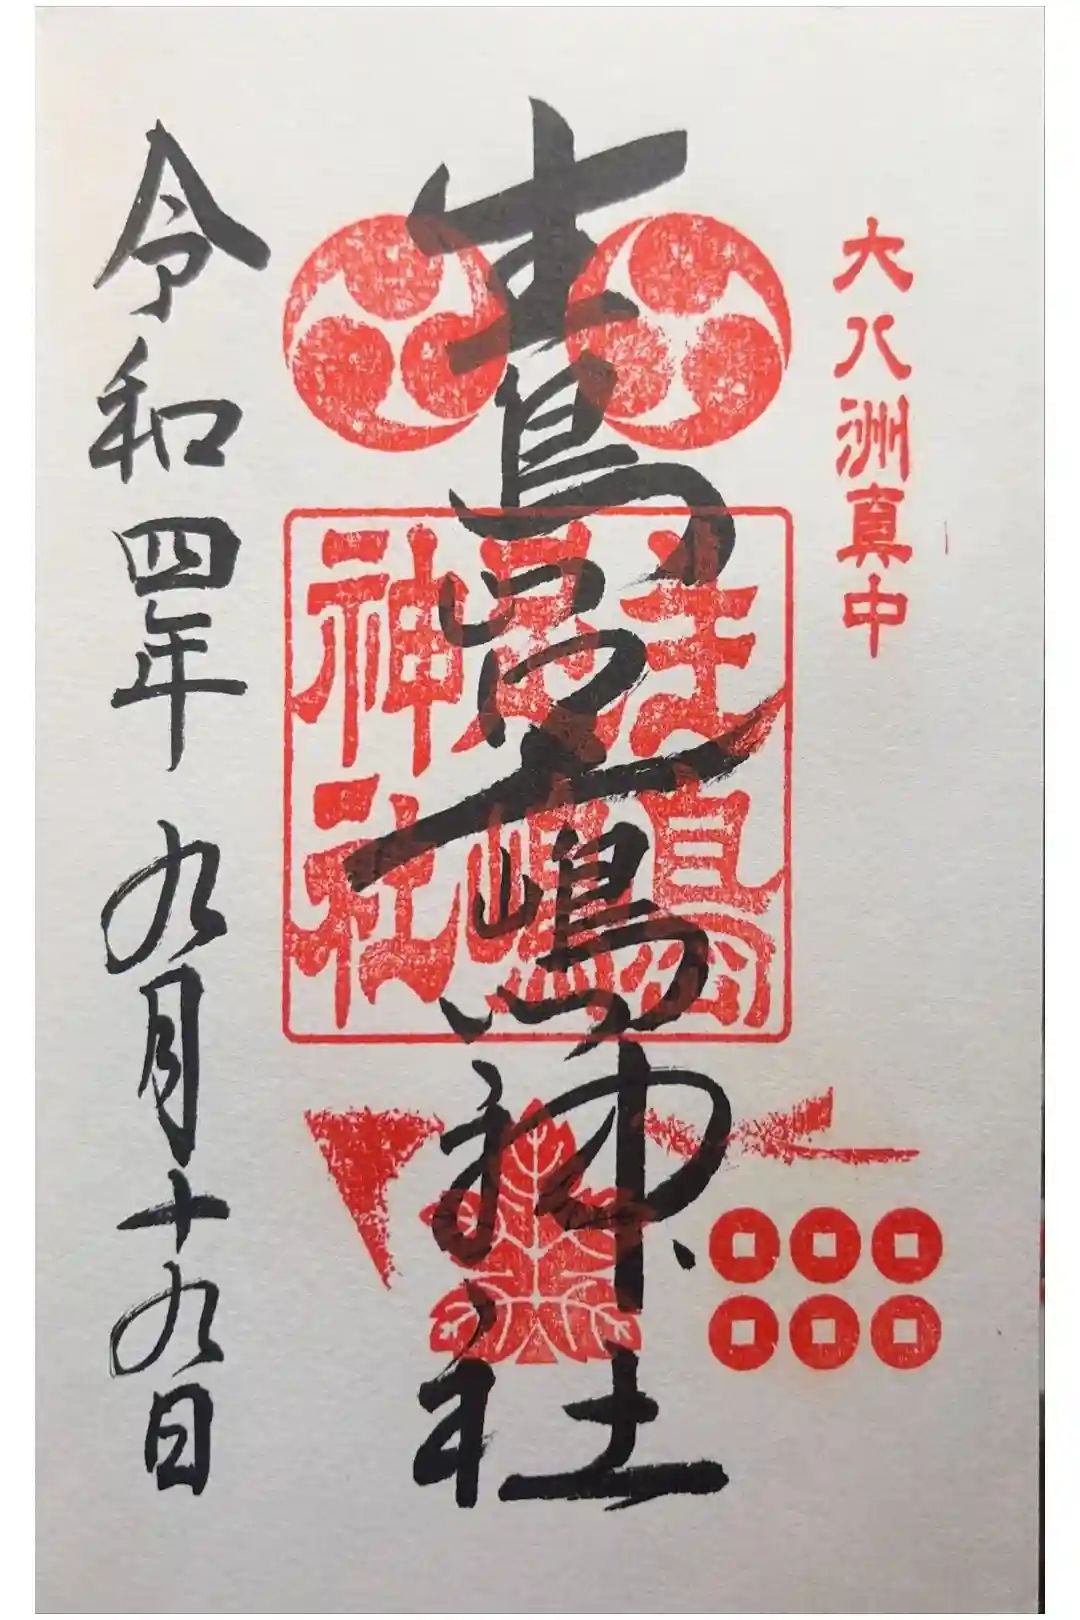 大八洲真中
生島足嶋神社
生島
足嶋
神社
令和四年 九月十九日